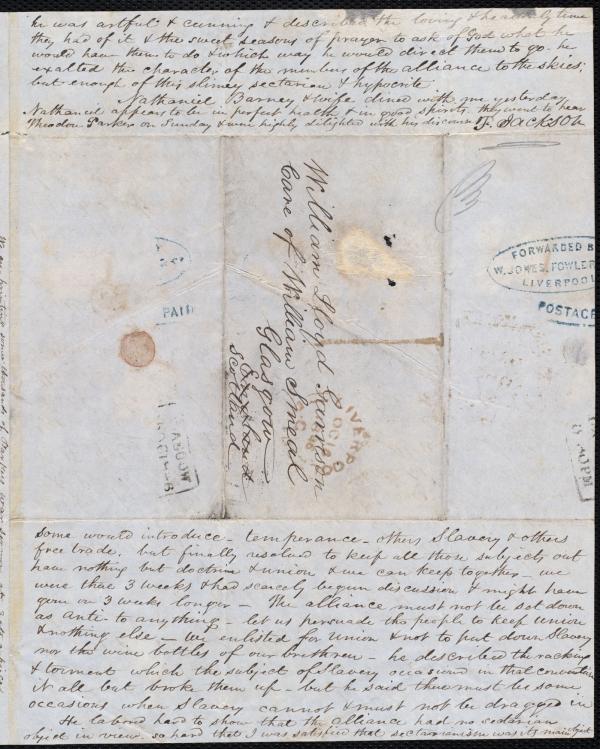 he was artful & cunning & described the loving & heavenly time
they had of it & the sweet seasons of prayer to ask of God what he
would have them to do & which way he would direct them to go. he
exalted the character of the members of the alliance to the skies;
but enough of this slimey sectarian & hypocrite.
Nathaniel Barney & wife dined with me yesterday
Nathaniel appears to be in perfect health & in good spirits. they went to hear
Theodore Parker on Sunday & were highly delighted with his discourse F. Jackson
William Lloyd Garrison
Care of William Smeal
Glasgow
England
Scotland
PAID
FORWARDED B
W. JONES, FOWLER
LIVERPOOL
POSTAGE
LIVERPO
We are printing some thousands of Parkers war sermon
Some would introduce - temperance - others Slavery & others
free trade. but finally resolved to keep all those subjects out
have nothing but doctrine & union & we can keep together - we
were there 3 weeks & had scarcely begun discussion & might have
gone on 3 weeks longer - The alliance must not be set down
as ante- to anything - let us persuade the people to keep union
& nothing else - we enlisted for union & not to put down Slavery
nor the wine bottles of our brethren - he described the racking
& torment which the subject of Slavery occasioned in that convention
it all but broke them up - but he said there must be some
occasions when Slavery cannot & must not be dragged in
He labord hard to show that the alliance had no sectarian
object in view. so hard that I was satisfied that sectarianism was its main object